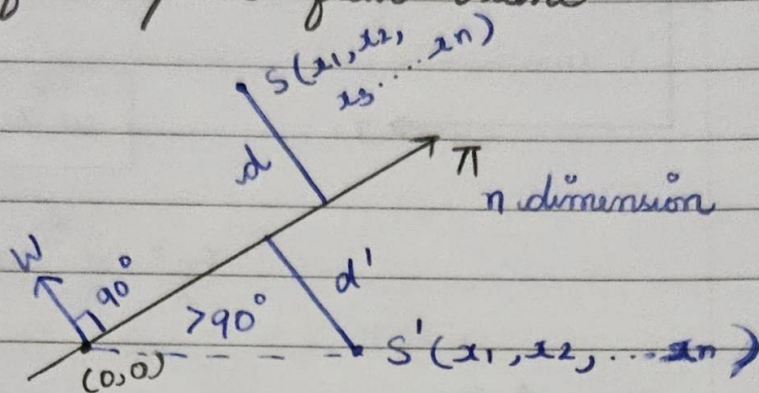 S(x1, x2,
x3.... xn)
d
π
n dimension
W
90°
>90°
d'
S'(x1, x2, ... xn)
(0,0)